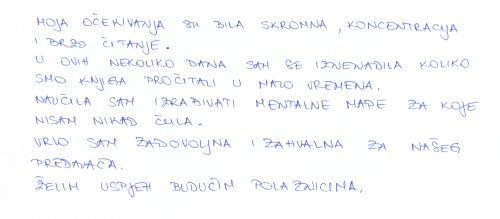 MOJA OČEKIVANJA SU BILA SKROMNA, KONCENTRACIJA
I BRZO ČITANJE.
U OVIH NEKOLIKO DANA SAM SE IZNENADILA KOLIKO
SMO KNJIGA PROČITALI U MALO VREMENA.
NAUČILA SAM IZRAĐIVATI MENTALNE MAPE ZA KOJE
NISAM NIKAD ČULA.
VRLO SAM ZADOVOLJNA I ZAHVALNA ZA NAŠEG
PREDAVAČA.
ŽELIM USPJEH BUDUĆIM POLAZNICIMA.